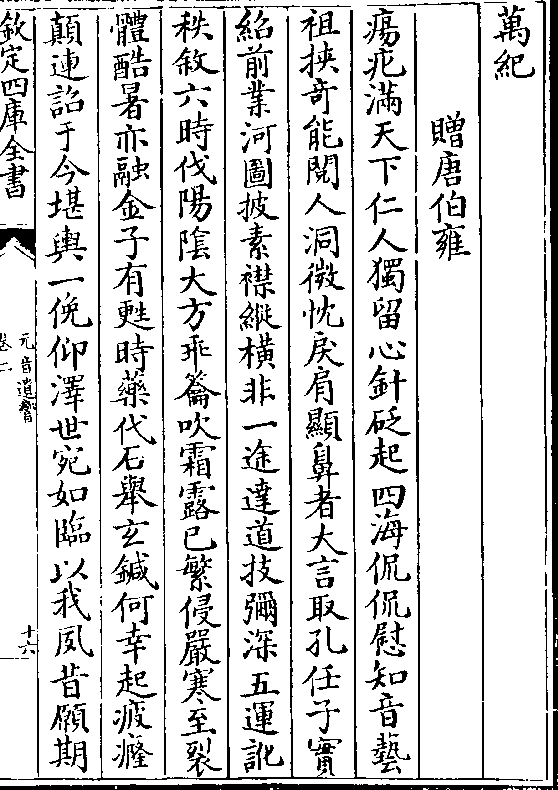 萬紀
贈唐伯雍
瘍疕滿天下仁人獨留心針砭起四海侃侃慰知音藝
祖挾竒能閱人洞微忱戾肩顯鼻者大言取孔任子實
紹前業河圖披素襟縱横非一途達道技彌深五運訛
秩敘六時伐陽陰大方乖籥吹霜露已繁侵嚴寒至裂
體酷暑亦融金子有甦時藥代石舉玄鍼何幸起疲癃
顛連詔于今堪輿一俛仰澤世宛如臨以我夙昔願期
欽定四庫全書
元音遺響
卷二
十六